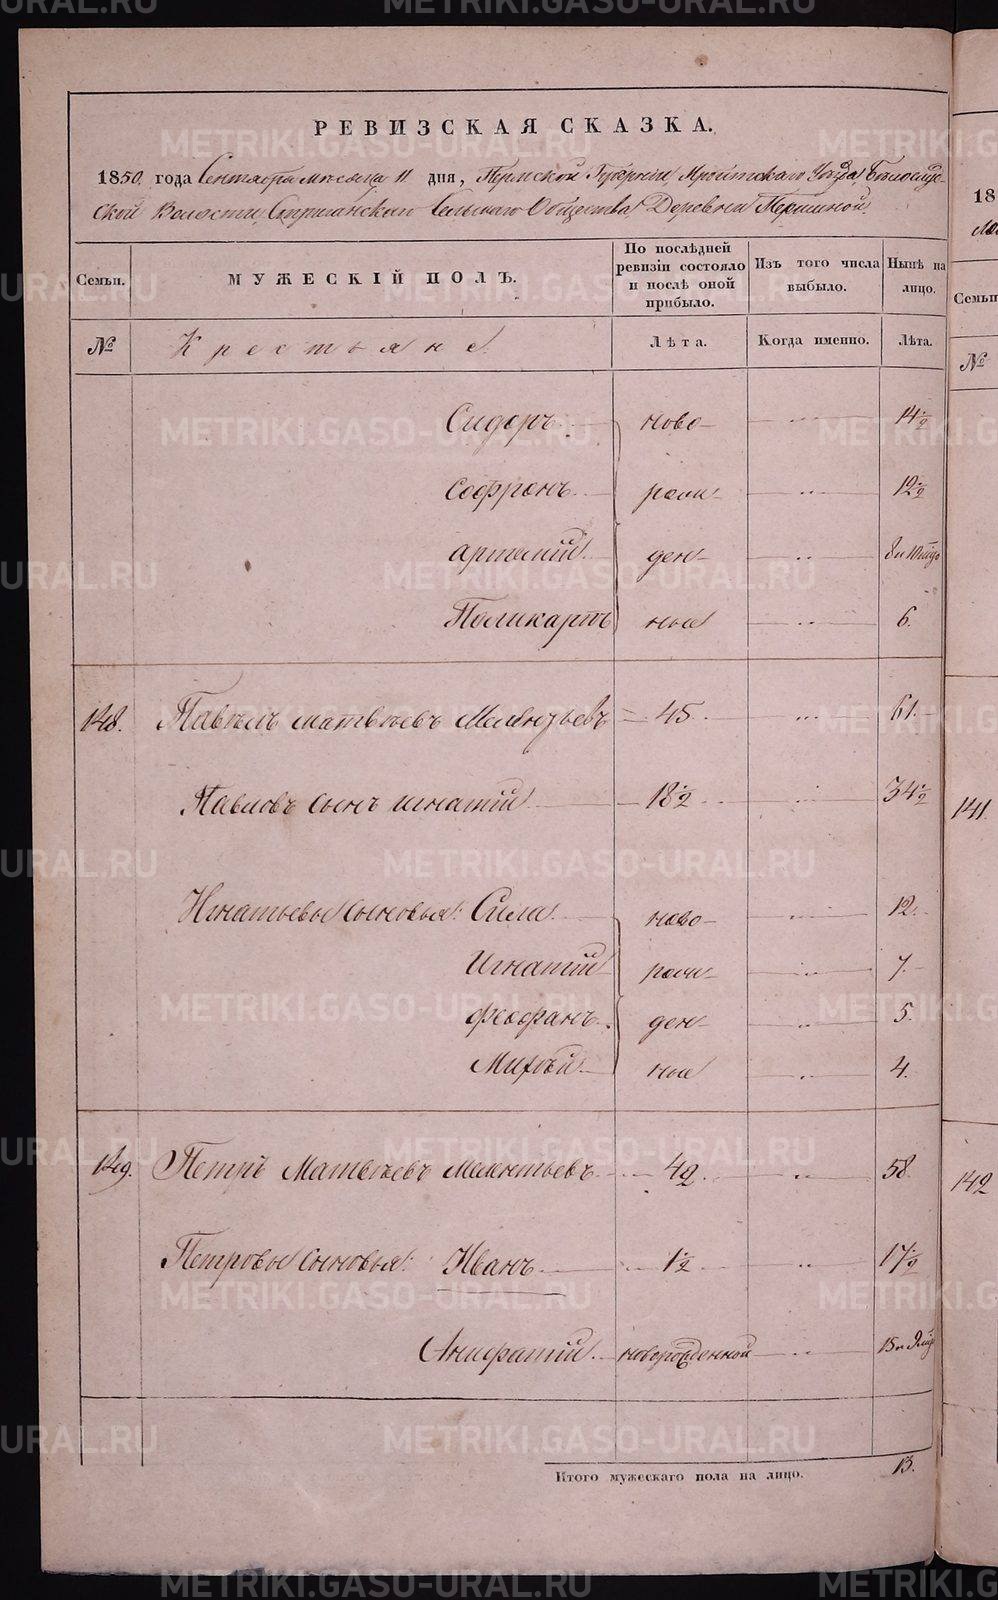 РЕВИЗСКАЯ СКАЗКА.
1850 года Сентября месяца 11 дня, Пермской Губернии, Ирбитскаго Уезда, Белослуд-
ской Волости, Стриганскаго Сельскаго Общества Деревни Першиной.
Семьи. МУЖЕСКІЙ ПОЛЪ. По послѣдней ревизіи состояло и послѣ оной прибыло. Изъ того числа выбыло. Нынѣ на лицо.
№ Крестьяне. Лѣта. Когда именно. Лѣта.
Сидоръ ново- 14 1/2
Софронъ рож- 12 1/2
Артемій ден- 8 и 10 мѣс
Поликарпъ ные 6.
148. Павелъ Матвѣевъ Мелентьевъ 45. 61.
Павловъ сынъ Игнатій 18 1/2 34 1/2
Игнатьевы сыновья: Сила ново- 12.
Игнатій рож- 7.
Феофанъ ден- 5.
Михѣй ные 4.
149. Петръ Матвѣевъ Мелентьевъ 42. 58.
Петровы сыновья: Иванъ 1 1/2 17 1/2
новорожденной
Итого мужескаго пола на лицо. 13.
18
Семьи
№
141.
142
METRIKI.GASO-URAL.RU